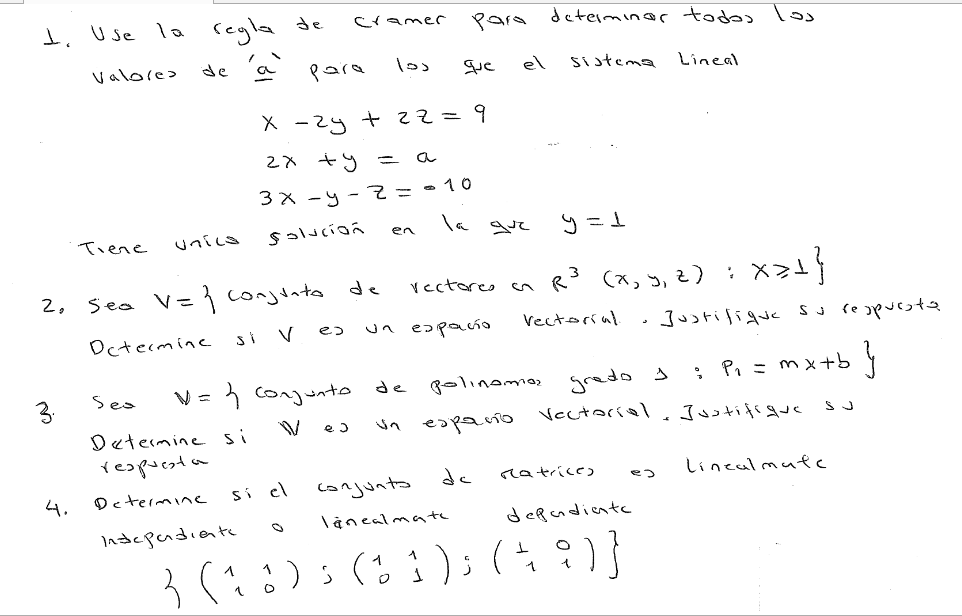 1. Use la regla de cramer para determinar todos los
valores de 'a' para los que el sistema Lineal
x - 2y + 2z = 9
2x + y = a
3x - y - z = -10
Tiene unica solución en la que y = 1
2. Sea V = { conjunto de vectores en R³ (x, y, z) : x ≥ 1 }
Determine si V es un espacio vectorial. Justifique su respuesta
3. Sea V = { conjunto de polinomios grado 1 : P₁ = mx + b }
Determine si V es un espacio vectorial. Justifique su
respuesta
4. Determine si el conjunto de matrices es linealmente
Independiente o linealmente dependiente
{ (1 1; 1 0) ; (1 1; 0 1) ; (1 0; 1 1) }